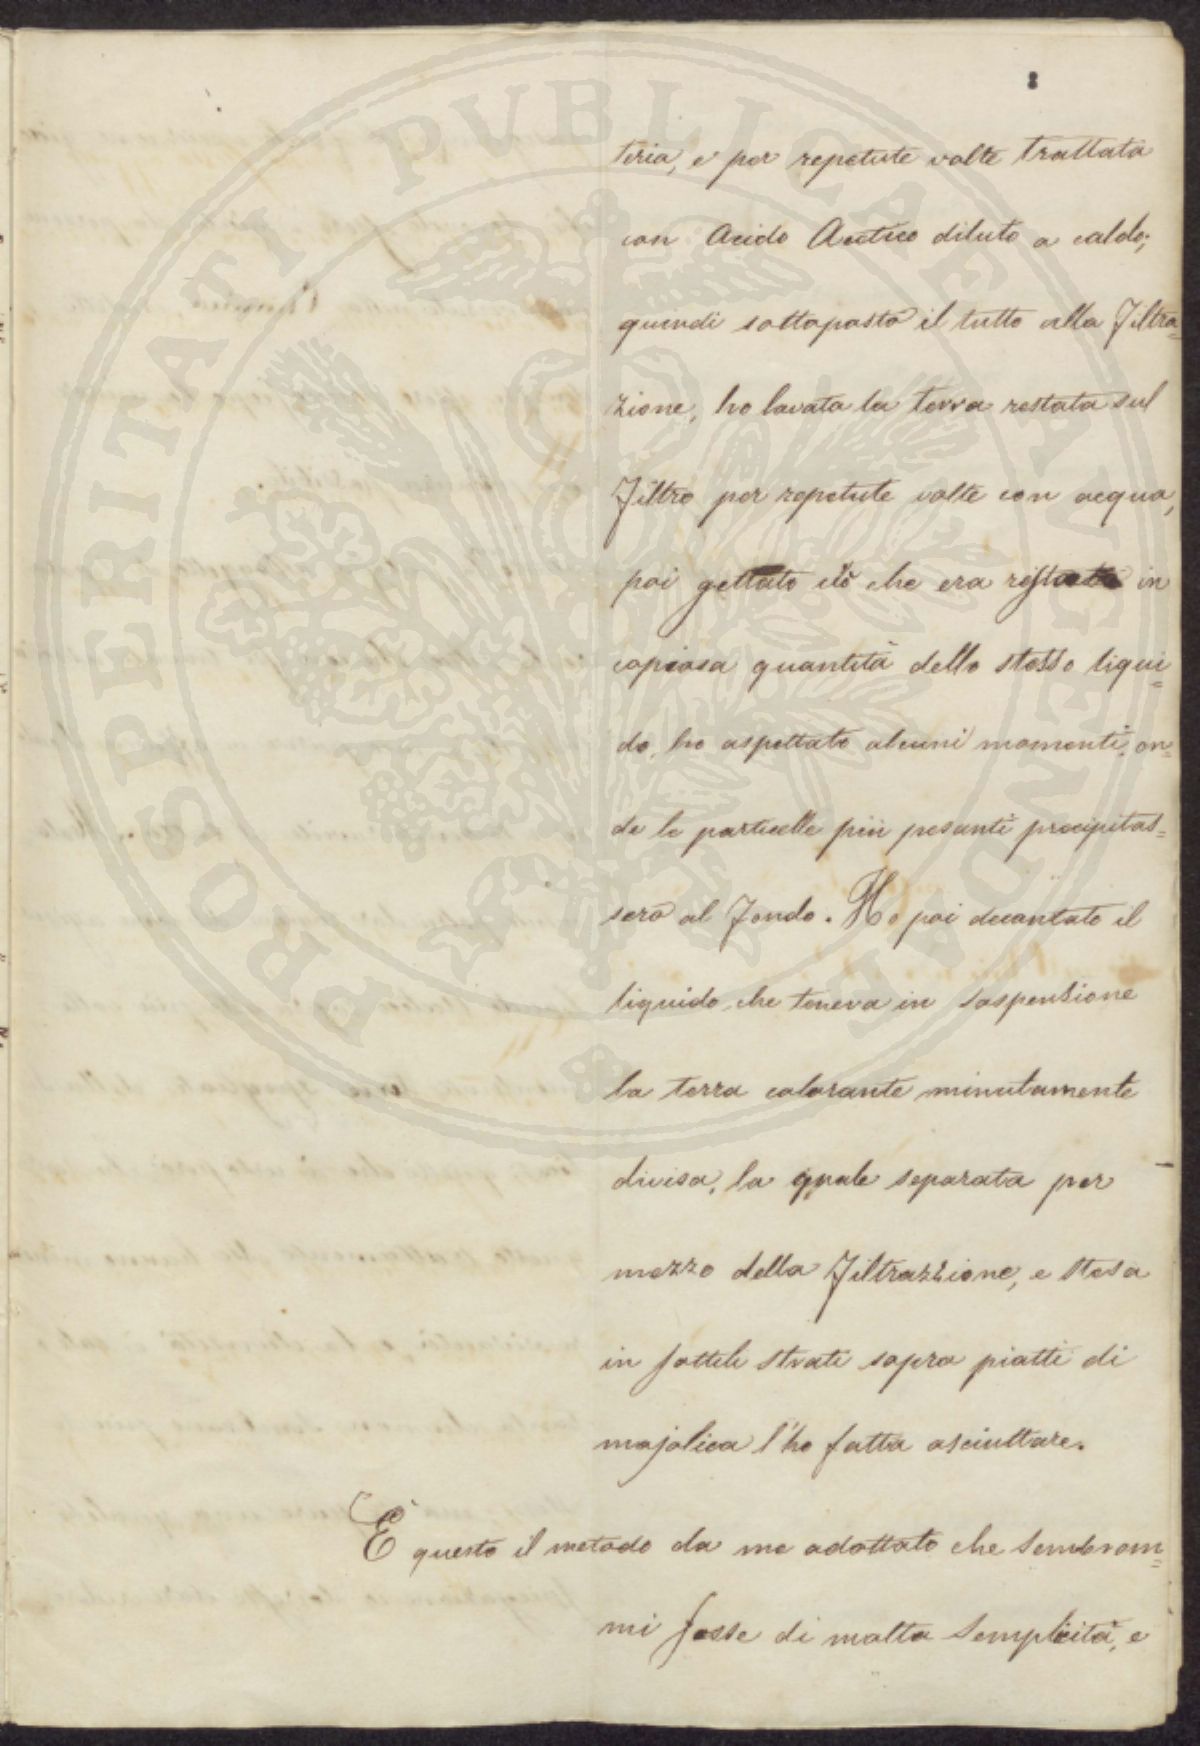 8
teria, e per repetute volte trattata
con Acido Acetico diluto a caldo;
quindi sottoposto il tutto alla Filtra=
zione, ho lavata la terra restata sul
Filtro per repetute volte con acqua,
poi gettato ciò che era in
copiosa quantità dello stesso liqui=
do, ho aspettato alcuni momenti, on=
de le particelle più pesanti precipitas=
sero al Fondo. Ho poi decantato il
liquido che teneva in sospensione
la terra colorante minutamente
divisa, la quale separata per
mezzo della Filtrazione, e stesa
in sottili strati sopra piatti di
majolica l'ho fatta asciuttare.
È questo il metodo da me adottato che sembrom=
mi fosse di molta semplicità, e
PROSPERITATI PVBLICAE AVGENDAE